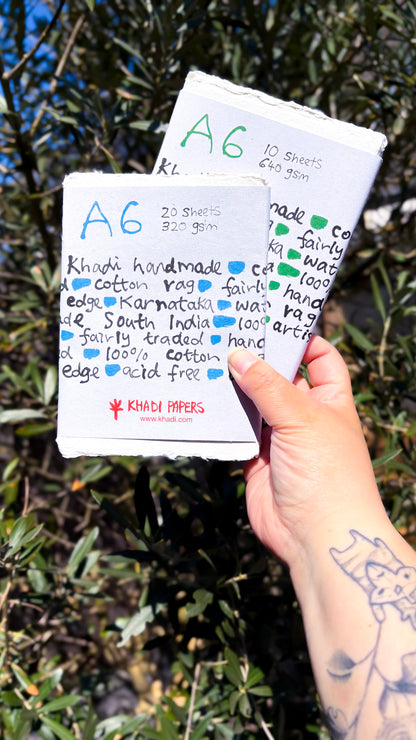 A6 10 sheets
640 gsm
made co
fairly
wat
100
hand
rag
artis
A6 20 sheets
320 gsm
Khadi handmade
cotton rag fairl
edge Karnataka wat
South India 100
fairly traded hand
100% cotton
edge acid free
KHADI PAPERS
www.khadi.com